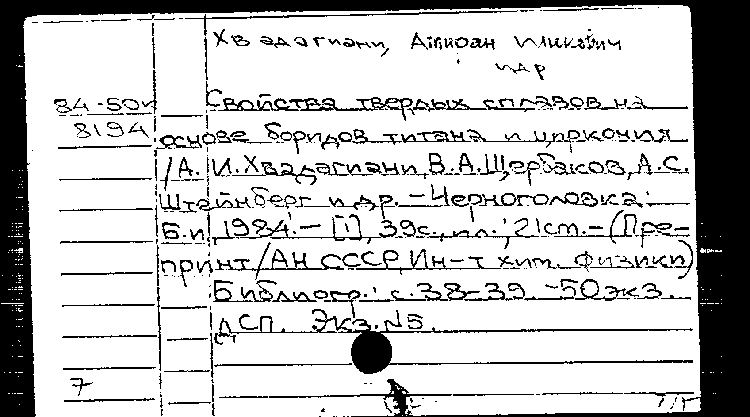 Хвадагиани, Амиран Иликович
и др
84-50п Свойства твердых сплавов на
8194 основе боридов титана и циркония
/А. И.Хвадагиани, В.А.Щербаков, А.С.
Штейнберг и др. – Черноголовка:
Б.и, 1984. – [1], 39с., ил.; 21см. – (Пре-
принт/АН СССР, Ин-т хим. физики)
Библиогр.: с.38-39. -50экз.
ДСП. Экз. №5.
7